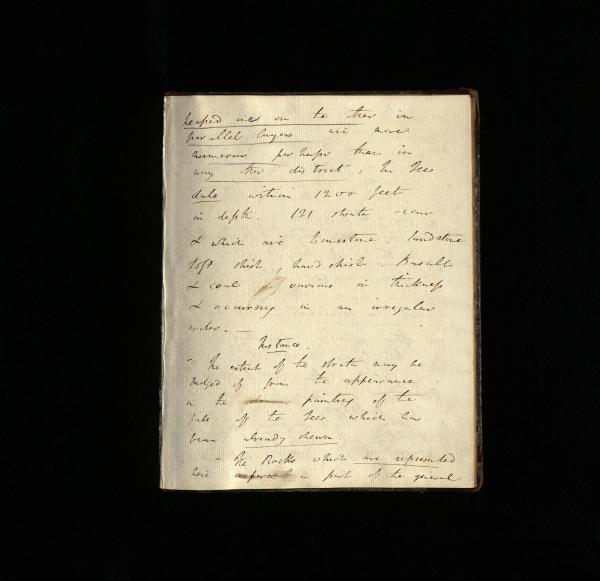 heaped one on to other in
parallel layers are more
numerous perhaps than in
any other district, In Tees
dale within 1200 feet
in depth. 121 strata occur
& which are limestone, sandstone
soft shist, hard shist. Basalt
& coal various in thickness
& occurring in an irregular
order. —
Instance.
- The extent of the strata may be
judged of from the appearance
in the painting of the
fall of the Tees which has
been already shewn
- The Rocks which are represented
here a part of the general